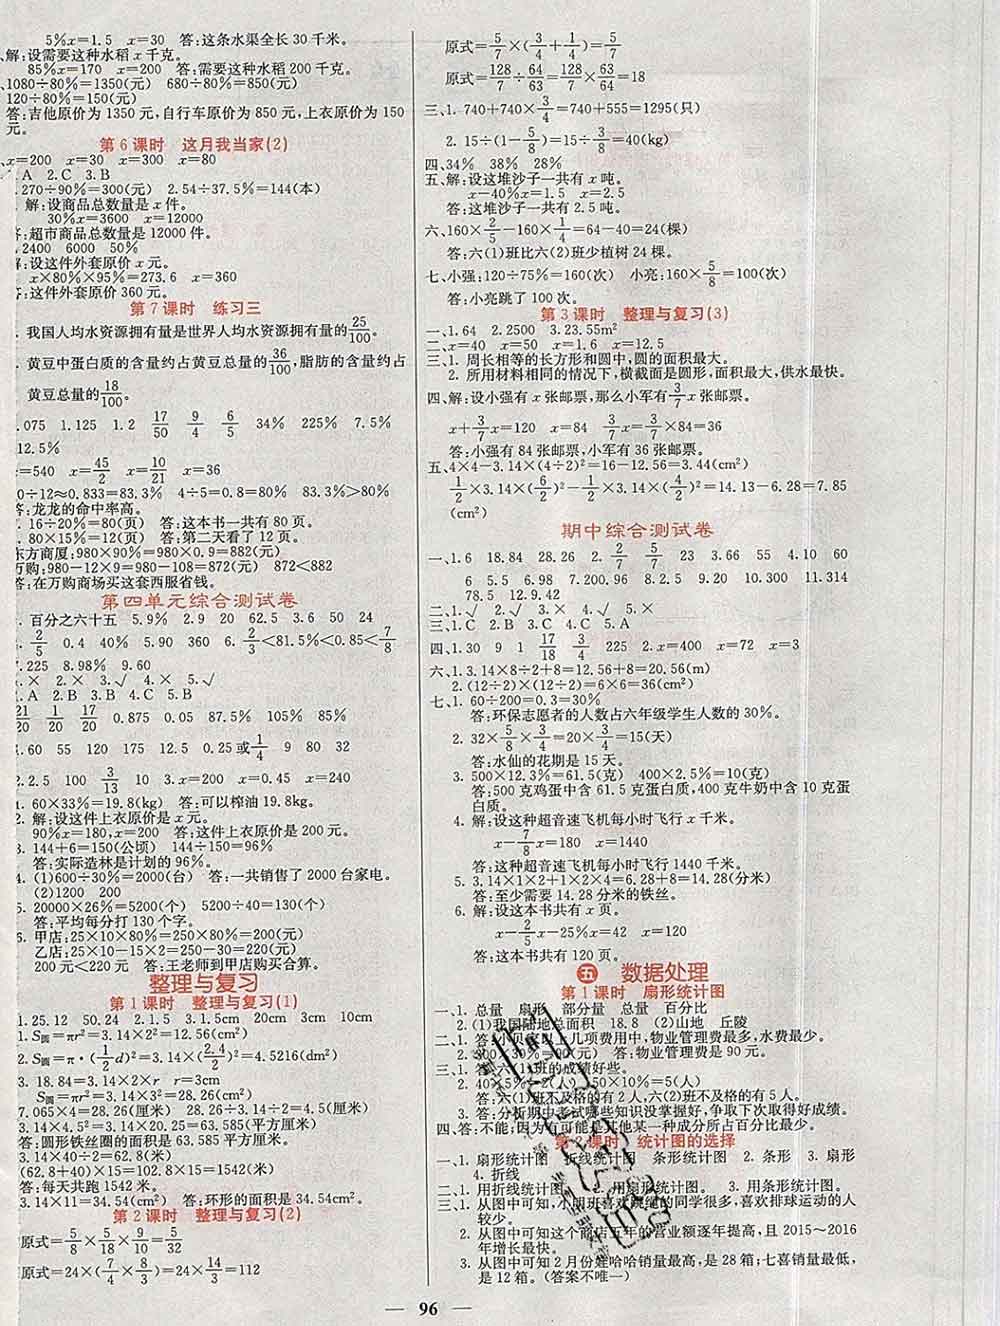 5%x=1.5 x=30 答:这条水渠全长30千米。
解:设需要这种水稻x千克。
85%x=170 x=200 答:需要这种水稻200千克。
1080÷80%=1350(元) 680÷80%=850(元)
120÷80%=150(元)
答:吉他原价为1350元,自行车原价为850元,上衣原价为150
元。
第6课时 这月我当家(2)
x=200 x=30 x=300 x=80
A 2.C 3.B
270÷90%=300(元) 2.54÷37.5%=144(本)
解:设商品总数量是x件。
30%x=3600 x=12000
答:超市商品总数量是12000件。
2400 6000 50%
解:设这件外套原价x元。
x×80%×95%=273.6 x=360
答:这件外套原价360元。
第7课时 练习三
我国人均水资源拥有量是世界人均水资源拥有量的25/100。
黄豆中蛋白质的含量约占黄豆总量的36/100,脂肪的含量约占
黄豆总量的18/100。
.075 1.125 1.2 17/50 9/4 6/5 34% 225% 7.5%
12.5%
x=540 x=45/2 x=10/21 x=36
0÷12≈0.833=83.3% 4÷5=0.8=80% 83.3%>80%
答:龙龙的命中率高。
16÷20%=80(页) 答:这本书一共有80页。
80×15%=12(页) 答:第二天看了12页。
东方商厦:980×90%=980×0.9=882(元)
万购:980-12×9=980-108=872(元) 872<882
答:在万购商场买这套西服省钱。
第四单元综合测试卷
百分之六十五 5.9% 2.9 20 62.5 3.6 50 24
2/5 0.4 40% 5.90 360 6.2/3<81.5%<0.85<7/8
7.225 8.98% 9.60
× 2.× 3.√ 4.× 5.√
A 2.B 3.B 4.C 5.B
21/20 1/20 17/20 0.875 0.05 87.5% 105% 85%
60 55 120 175 12.5 0.25或1/4 9 80 32
2.2.5 100 3/13 10 2 x=200 x=0.45 x=240
60×33%=19.8(kg) 答:可以榨油19.8kg。
2. 解:设这件上衣原价是x元。
90%x=180,x=200 答:这件上衣原价是200元。
3. 144+6=150(公顷) 144÷150=96%
答:实际造林是计划的96%。
4. (1)600÷30%=2000(台) 答:一共销售了2000台家电。
(2)1200 200
5. 20000×26%=5200(个) 5200÷40=130(个)
答:平均每分打130个字。
6. 甲店:25×10×80%=250×80%=200(元)
乙店:25×10-15×2=250-30=220(元)
200元<220元 答:王老师到甲店购买合算。
整理与复习
第1课时 整理与复习(1)
1.25.12 50.24 2.1.5 3.1.5cm 20cm 3cm 10cm
1.S圆=πr²=3.14×2²=12.56(cm²)
2.S圆=π·(1/2d)²=3.14×(2.4/2)²=4.5216(dm²)
3. 18.84=3.14×2×r r=3cm
S圆=πr²=3.14×3²=28.26(cm²)
7.065×4=28.26(厘米) 28.26÷3.14÷2=4.5(厘米)
3.14×4.5²=3.14×20.25=63.585(平方厘米)
答:圆形铁丝圈的面积是63.585平方厘米。
3.14×40÷2=62.8(米)
(62.8+40)×15=102.8×15=1542(米)
答:每天共跑1542米。
3.14×11=34.54(cm²) 答:环形的面积是34.54cm²。
第2课时 整理与复习(2)
原式=5/8×5/18×9/10=5/32
原式=24×(7/4×8/3)=24×14/3=112
原式=5/7×(3/4+1/4)=5/7
原式=128/7÷64/63=128/7×63/64=18
三、1. 740+740×3/4=740+555=1295(只)
2. 15÷(1-5/8)=15÷3/8=40(kg)
四、34% 38% 28%
五、解:设这堆沙子一共有x吨。
x-40%x=1.5 x=2.5
答:这堆沙子一共有2.5吨。
六、160×2/5-160×1/4=64-40=24(棵)
答:六(1)班比六(2)班少植树24棵。
七、小强:120÷75%=160(次) 小亮:160×5/8=100(次)
答:小亮跳了100次。
第3课时 整理与复习(3)
一、1.64 2.2500 3.23.55m²
二、x=40 x=50 x=1.6 x=12.5
三、1. 周长相等的长方形和圆中,圆的面积最大。
2. 所用材料相同的情况下,横截面是圆形,面积最大,供水最快。
四、解:设小强有x张邮票,那么小军有3/7x张邮票。
x+3/7x=120 x=84 3/7x=3/7×84=36
答:小强有84张邮票,小军有36张邮票。
五、4×4-3.14×(4÷2)²=16-12.56=3.44(cm²)
1/2×3.14×(6/2)²-1/2×3.14×(4/2)²=14.13-6.28=7.85
(cm²)
期中综合测试卷
一、1.6 18.84 28.26 2.2/7 5/7 23 3.66 55 4.10 60
6 5.5 6.98 7.200.96 8.2.5 9.20 10.300 11.314
78.5 12.9.42
二、1.√ 2.√ 3.× 4.√ 5.×
三、1.C 2.B 3.C 4.C 5.A
四、1.30 9 1 17/18 3/4 225 2.x=400 x=72 x=3
六、1.3.14×8÷2+8=12.56+8=20.56(m)
2.(12÷2)×(12÷2)=6×6=36(cm²)
七、1. 60÷200=0.3=30%
答:环保志愿者的人数占六年级学生人数的30%。
2. 32×5/8×3/4=20×3/4=15(天)
答:水仙的花期是15天。
3. 500×12.3%=61.5(克) 400×2.5%=10(克)
答:500克鸡蛋中含61.5克蛋白质,400克牛奶中含10克蛋
白质。
4. 解:设这种超音速飞机每小时飞行x千米。
x-7/8x=180 x=1440
答:这种超音速飞机每小时飞行1440千米。
5. 3.14×1×2+1×2×4=6.28+8=14.28(分米)
答:至少需要14.28分米的铁丝。
6. 解:设这本书共有x页。
x-2/5x-25%x=42 x=120
答:这本书共有120页。
五 数据处理
第1课时 扇形统计图
一、1. 总量 扇形 部分量 总量 百分比
2.(1)我国陆地总面积 18.8 (2)山地 丘陵
二、1. 答:贝贝家的几项费用中,物业管理费最多,水费最少。
2. 300×30%=90(元) 答:物业管理费是90元。
三、1. 答:六(1)班的成绩好些。
2. 40×5%=2(人) 50×10%=5(人)
答:六(1)班不及格的有2人,六(2)班不及格的有5人。
3. 答:分析期中考试哪些知识没掌握好,争取下次取得好成绩。
四、答:不能;因为它可能是其他某一种成分所占百分比最少。
第2课时 统计图的选择
一、1. 扇形统计图 折线统计图 条形统计图 2. 条形 3. 扇形
4. 折线
二、1. 用折线统计图 2. 用扇形统计图 3. 用条形统计图
三、1. 从图中可知,小丽班喜欢玩绳的同学很多,喜欢排球运动的人
较少。
2. 从图中可知这个商店五年的营业额逐年提高,且2015～2016
年增长最快。
3. 从图中可知2月份娃哈哈销量最高,是28箱;七喜销量最低,
是12箱。(答案不唯一)
— 96 —